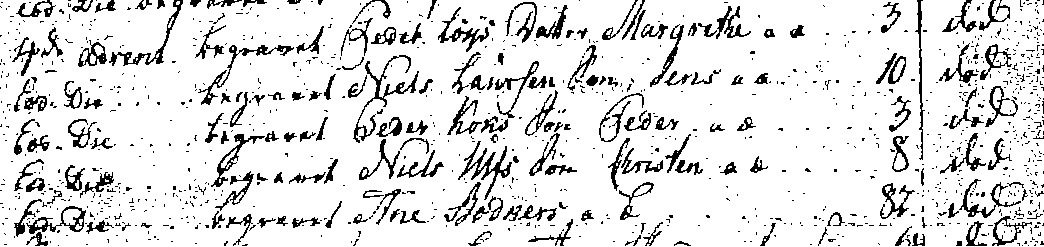 Eod. Die begravet
4de Advent begravet Peder Töÿs Datter Margrethe a æ 3 død
Eod. Die begravet Niels Laursen Søn Jens a æ 10 død
Eod. Die begravet Peder Koks Søn Peder a æ 3 død
Eod. Die begravet Niels Søn Christen a æ 8 død
Eod. Die begravet Ane a Æ 82 død